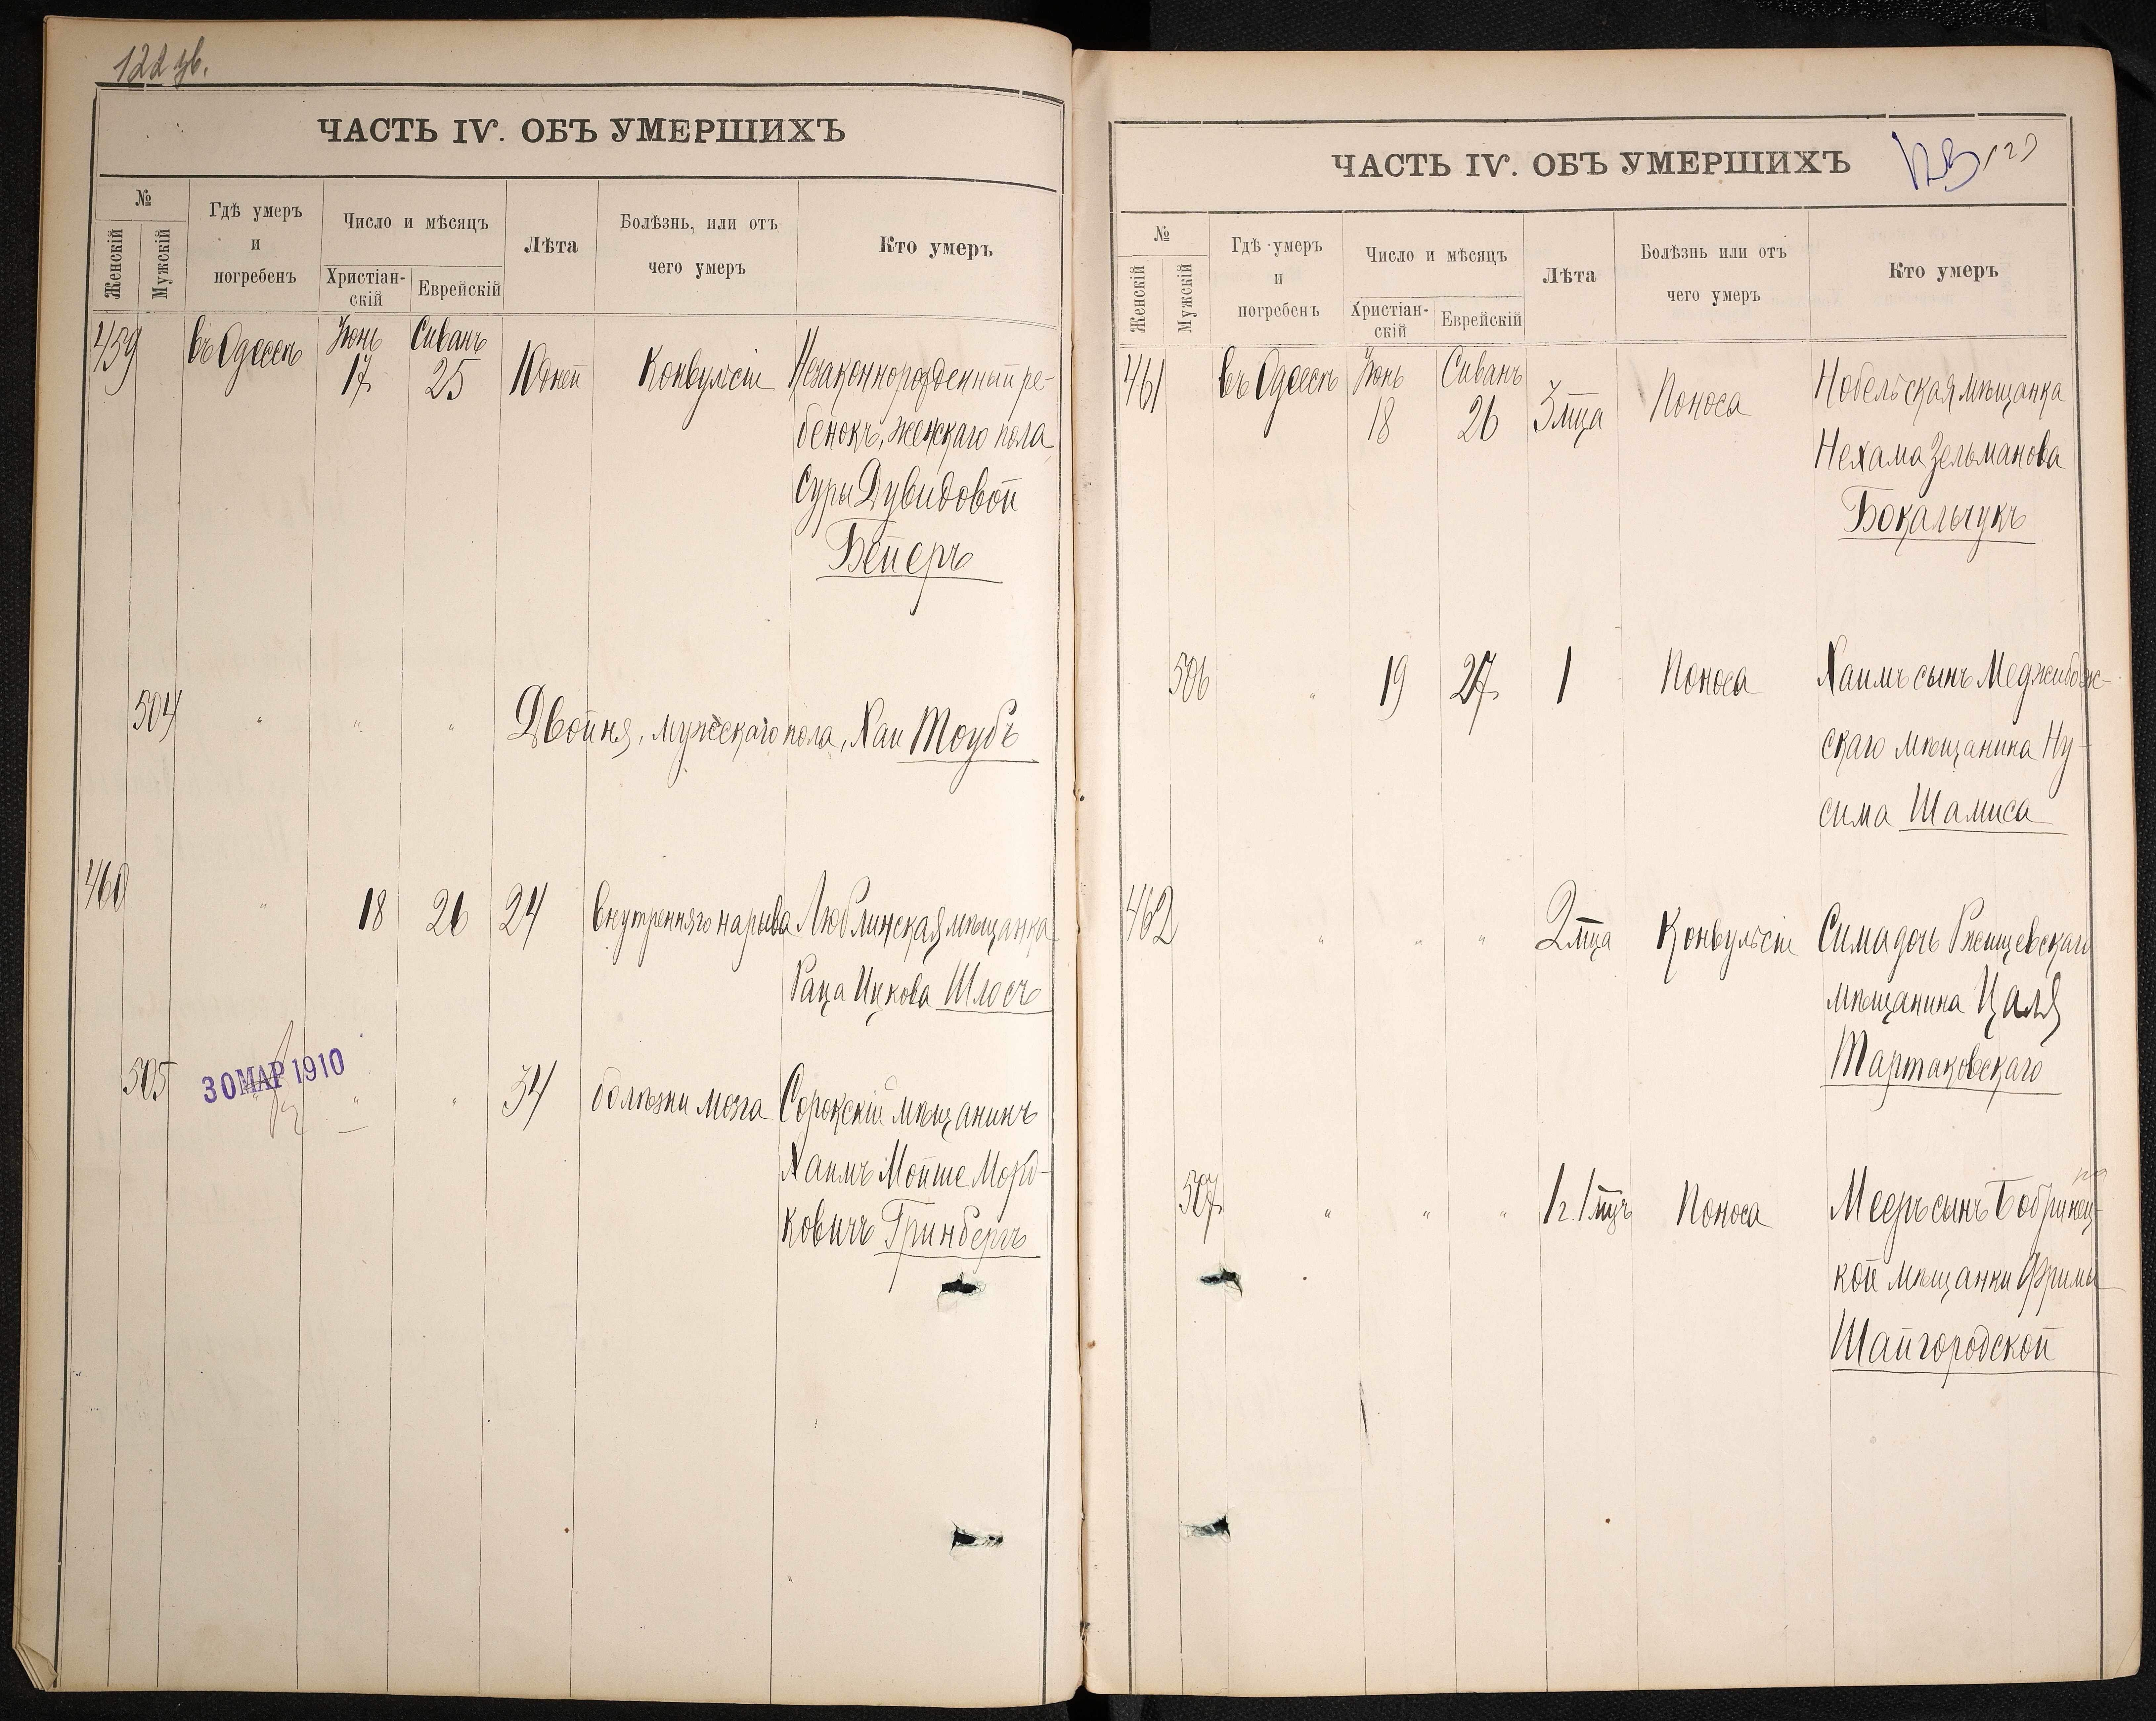 122 об.
ЧАСТЬ IV. ОБЪ УМЕРШИХЪ
№
Женскій
Мужскій
Гдѣ умеръ
и
погребенъ
Число и мѣсяцъ
Христіан-
скій
Еврейскій
Лѣта
Болѣзнь, или отъ
чего умеръ
Кто умеръ
459 въ Одессѣ Іюнь 17 Сиванъ 25 10 дней Конвульсіи Незаконнорожденный ре-
бенокъ, женскаго пола
Суры Дувидовой
Бейеръ
504 " " " Двойня, мужескаго пола, Хаи Тоубъ
460 " 18 26 24 внутренняго нарыва Люблинская мѣщанка
Раца Ицкова Шлосъ
505 30 МАР 1910 " " 34 болѣзни мозга Сорокскій мѣщанинъ
Хаимъ Мойше Морд-
ковичъ Гринбергъ
ЧАСТЬ IV. ОБЪ УМЕРШИХЪ
123
№
Женскій
Мужскій
Гдѣ умеръ
и
погребенъ
Число и мѣсяцъ
Христіан-
скій
Еврейскій
Лѣта
Болѣзнь или отъ
чего умеръ
Кто умеръ
461 въ Одессѣ Іюнь 18 Сиванъ 26 3 мца Поноса Нобельская мѣщанка
Нехама Зельманова
Бокальчукъ
506 " 19 27 1 Поноса Хаимъ сынъ Меджибож-
скаго мѣщанина Ну-
сима Шамиса
462 " " " 2 мца Конвульсіи Сима дочь Ржищевскаго
мѣщанина Цаля
Тартаковскаго
507 " " " 1 г. 1 мцъ Поноса Мееръ сынъ Бобринец-
кой мѣщанки Фримы
Шайгородской